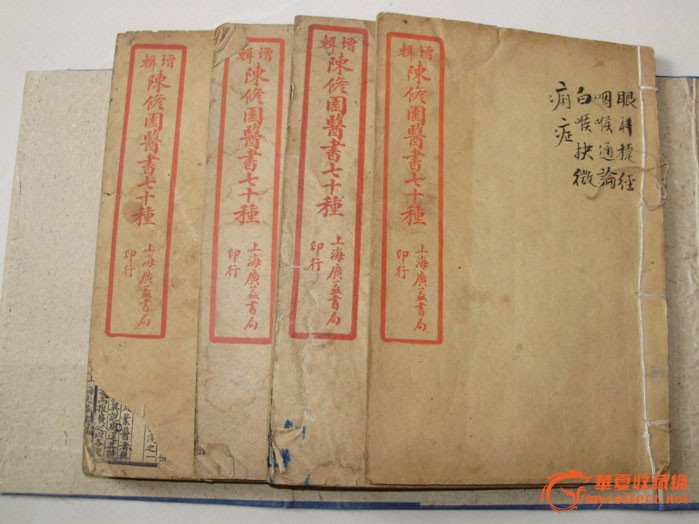 增輯
陳修園醫書七十種
上海廣益書局
印行
增輯
陳修園醫書七十種
上海廣益書局
印行
增輯
陳修園醫書七十種
上海廣益書局
印行
增輯
陳修園醫書七十種
上海廣益書局
印行
眼科捷徑
咽喉通論
白喉抉微
痧症
華夏收藏網